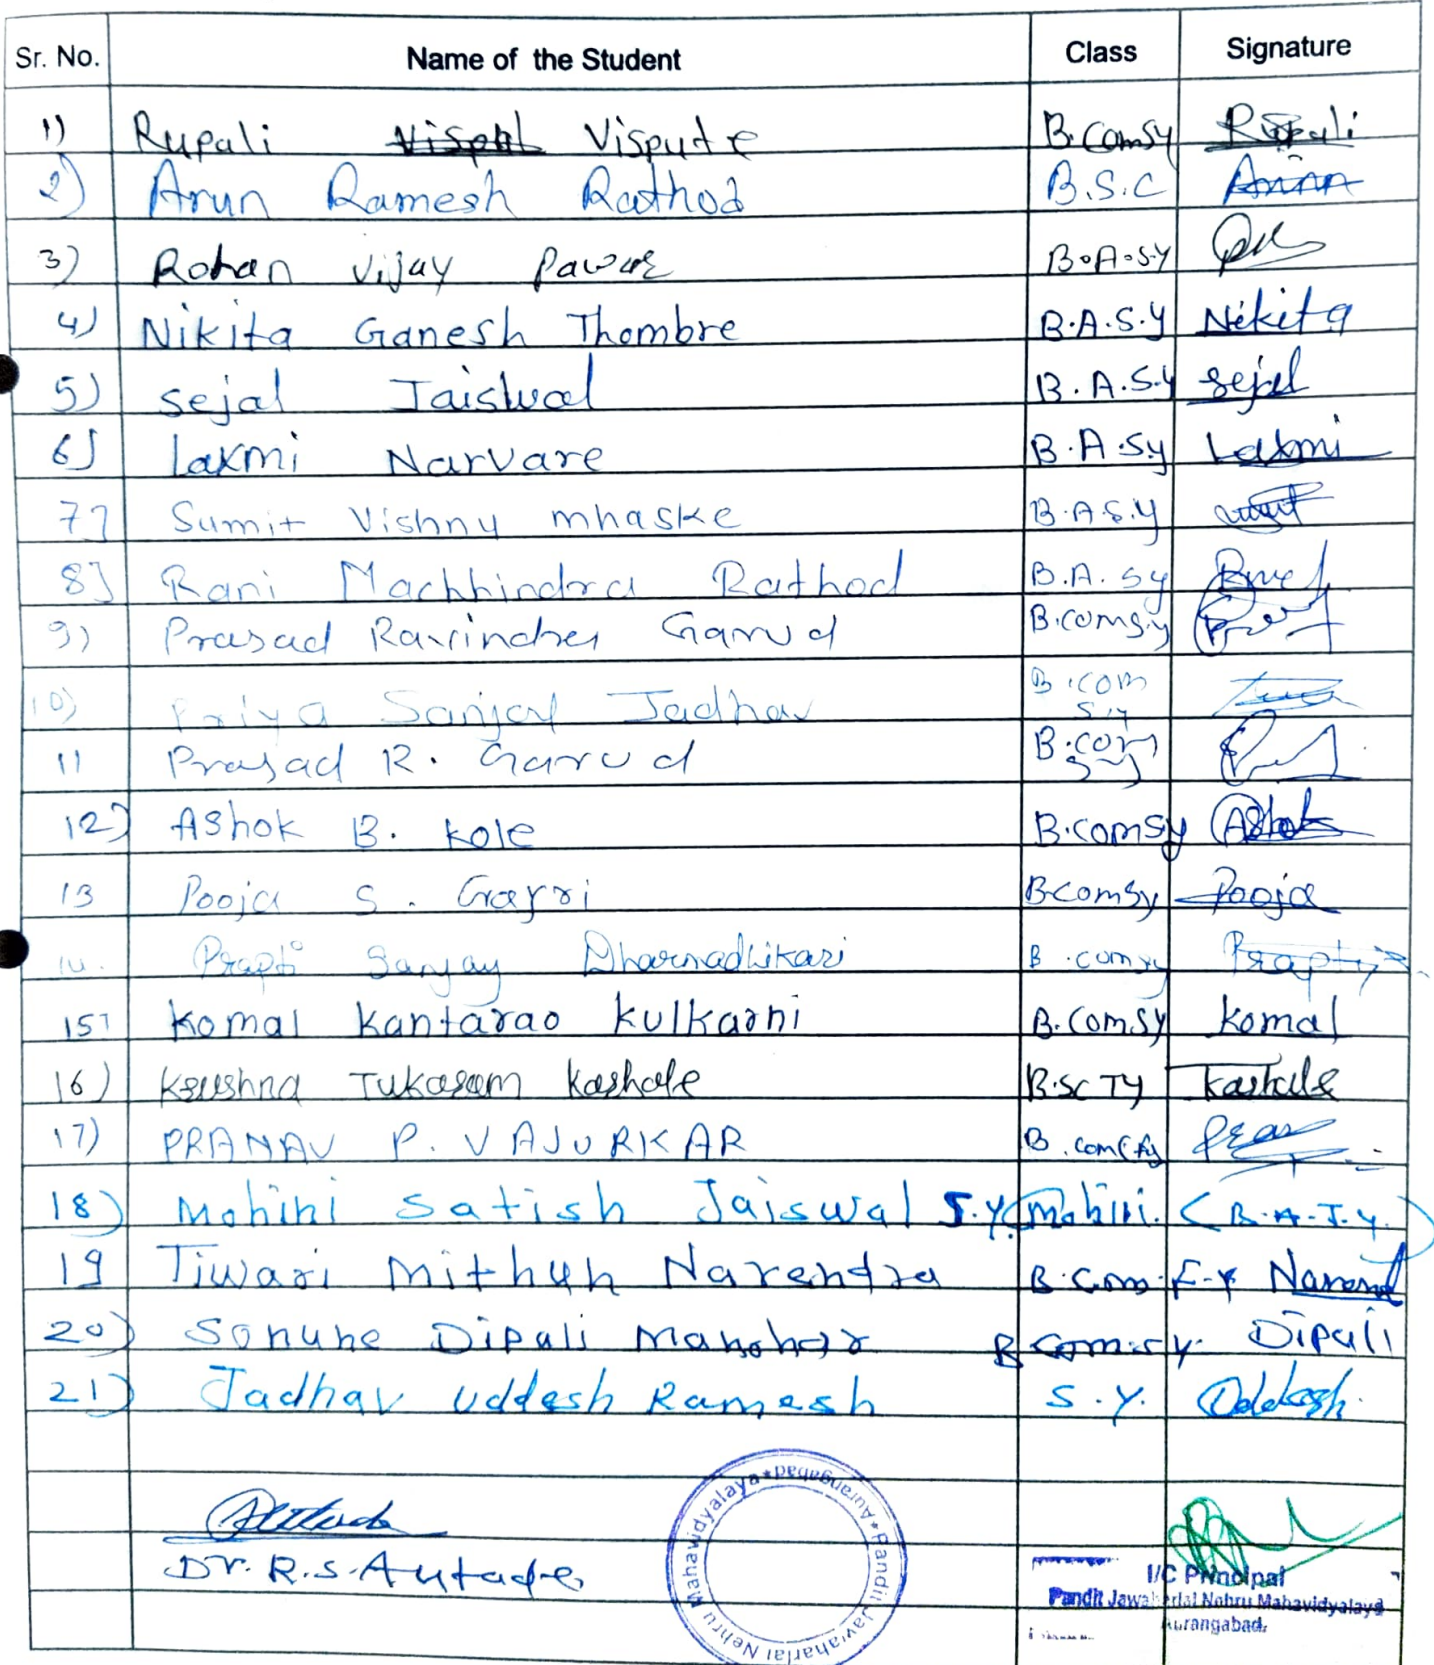 Sr. No. Name of the Student Class Signature
1) Rupali Vispute B.Com sy Rupali
2) Arun Ramesh Rathod B.S.C Arun
3) Rohan Vijay Pawar B.A.S.Y
4) Nikita Ganesh Thombre B.A.S.Y Nikita
5) sejal Jaiswal B.A.S.Y sejal
6] Laxmi Narvare B.A Sy Laxmi
7] Sumit Vishnu mhaske B.A.S.y
8] Rani Machhindra Rathod B.A. sy
9) Prasad Ravinder Garud B.com s.y
10) Priya Sanjay Jadhav B.com S.Y
11 Prasad R. Garud B.com
12) AShok B. kole B.com sy Ashok
13 Pooja S. B-com Sy Pooja
14. Prapti Sanjay Dharmadhikari B.com sy Prapti
15] komal kantarao kulkarni B.Com.SY komal
16) Krushna Tukaram Kashale B.SC TY Kashale
17) PRANAV P. VAJURKAR B.com
18) Mohini Satish Jaiswal S.Y Mohini. (B.A.T.Y.)
19 Tiwari Mithun Narendra B.Com. F-Y
20) Sonune Dipali Manohar B com.sy. Dipali
21) Jadhav Uddesh Ramesh S.Y.
Dr. R.S. Autade
Pandit Jawaharlal Nehru Mahavidyalaya * Aurangabad *
I/C Principal
Pandit Jawaharlal Nehru Mahavidyalaya
Aurangabad.